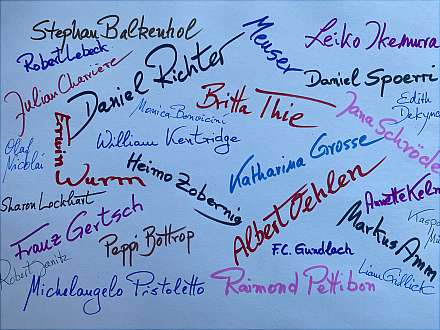 Stephan Balkenhol
Robert Lebeck
Meuser
Leiko Ikemura
Julian Charrière
Daniel Richter
Daniel Spoerri
Monica Bonvicini
Britta Thie
Edith
Dekyn
Jana Schröde
Erwin
Wurm
William Kentridge
Olaf
Nicolai
Heimo Zobernig
Katharina Grosse
Annette Keln
Sharon Lockhart
Franz Gertsch
Peppi Bottrop
Albert Oehlen
Markus Amm
Kaspa
F.C. Gundlach
Robert Janitz
Michelangelo Pistoletto
Raimond Pettibon
Liam Gillick